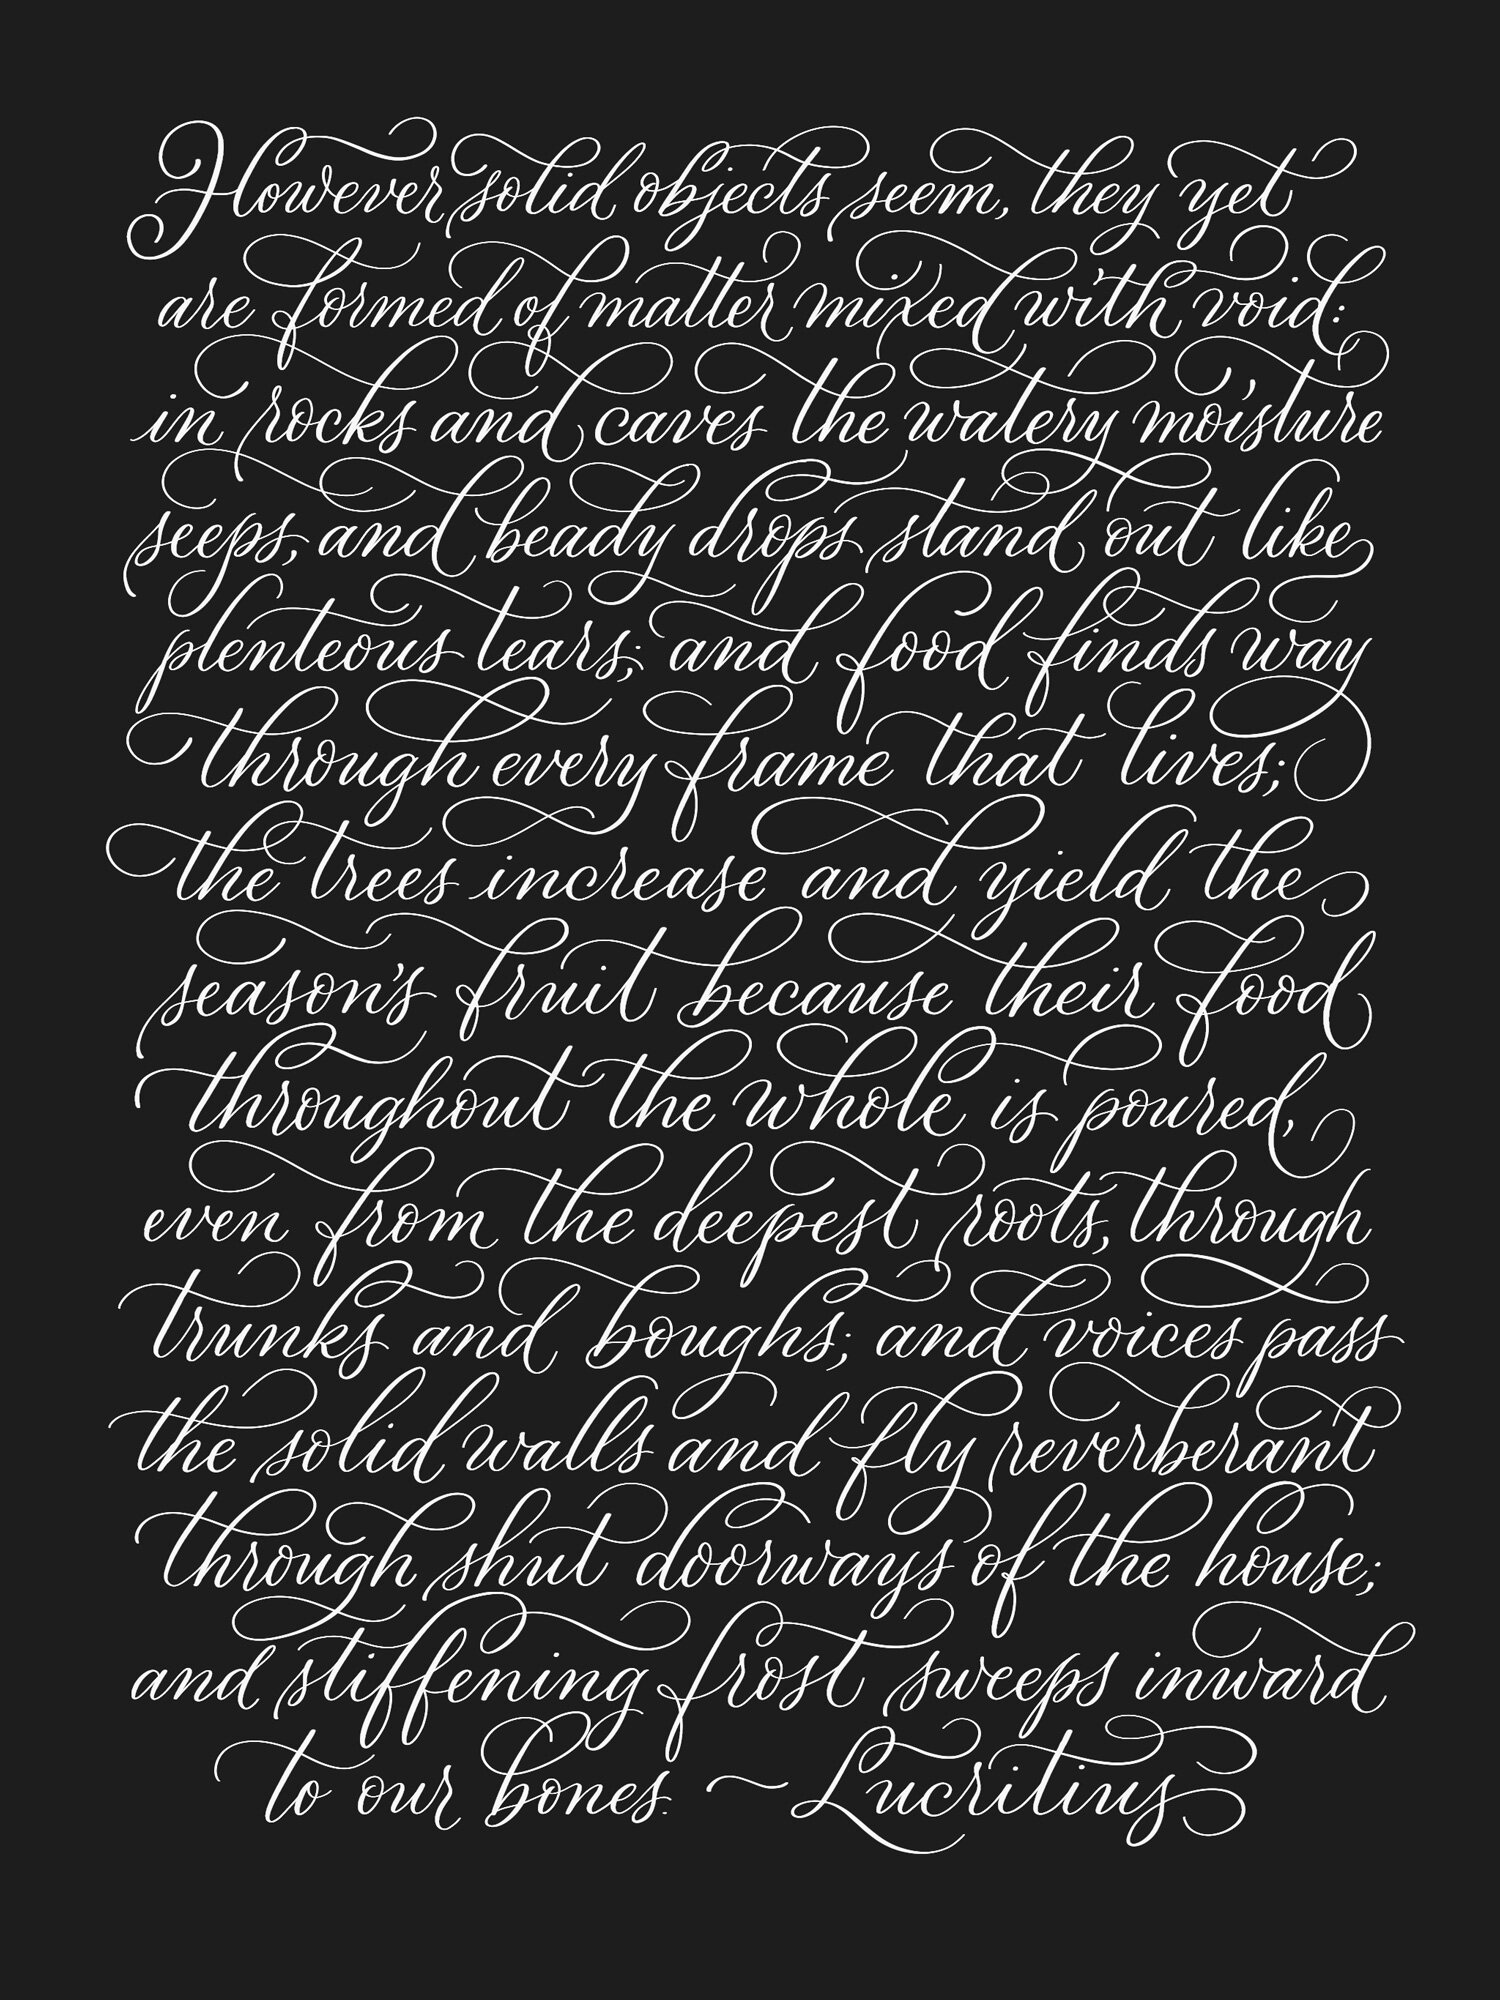 However solid objects seem, they yet
are formed of matter mixed with void:
in rocks and caves the watery moisture
seeps, and beady drops stand out like
plenteous tears; and food finds way
through every frame that lives;
the trees increase and yield the
season's fruit because their food
throughout the whole is poured,
even from the deepest roots, through
trunks and boughs; and voices pass
the solid walls and fly reverberant
through shut doorways of the house;
and stiffening frost sweeps inward
to our bones. ~ Lucritius